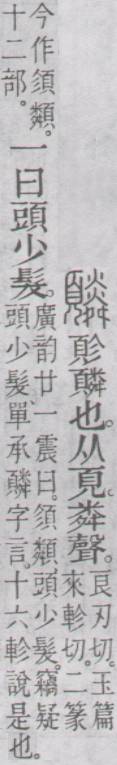 𩒉䫰也。从頁粦聲。良刃切。玉篇來軫切。二篆
今作須類。十二部。一曰頭少髮。廣韵廿一震曰。須類、頭少髮。竊疑頭少髮單承䫰字言。十六軫說是也。